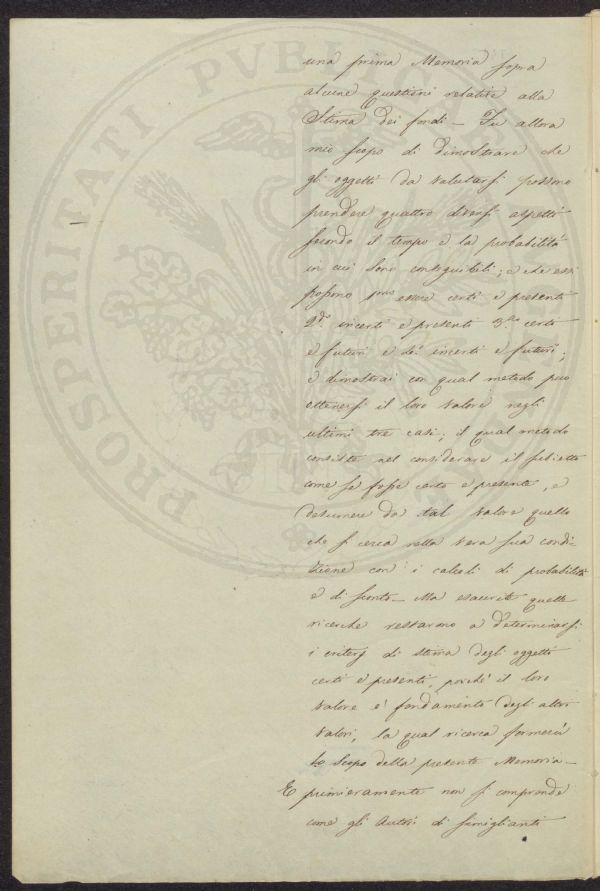 PROSPERITATI PVBLICAE
una prima Memoria sopra
alcune questioni relative alla
Stima dei fondi – Fu allora
mio scopo di dimostrare che
gli oggetti da valutarsi possono
prendere quattro diversi aspetti
secondo il tempo e la probabilità
in cui sono conseguibili; e che essi
possono 1mo essere certi e presenti
2do incerti e presenti 3zo certi
e futuri e 4to incerti e futuri;
e dimostrai con qual metodo può
ottenersi il loro valore negli
ultimi tre casi; il qual metodo
consiste nel considerare il subietto
come se fosse certo e presente, e
desumere da tal valore quello
che si cerca nella vera sua condi-
zione con i calcoli di probabilità
e di sconto – Ma esaurite quelle
ricerche restarono a determinarsi
i criterj di stima degli oggetti
certi e presenti, poiché il loro
valore è fondamento degli altri
valori, la qual ricerca formerà
lo scopo della presente Memoria –
E primieramente non si comprende
come gli Autori di simiglianti